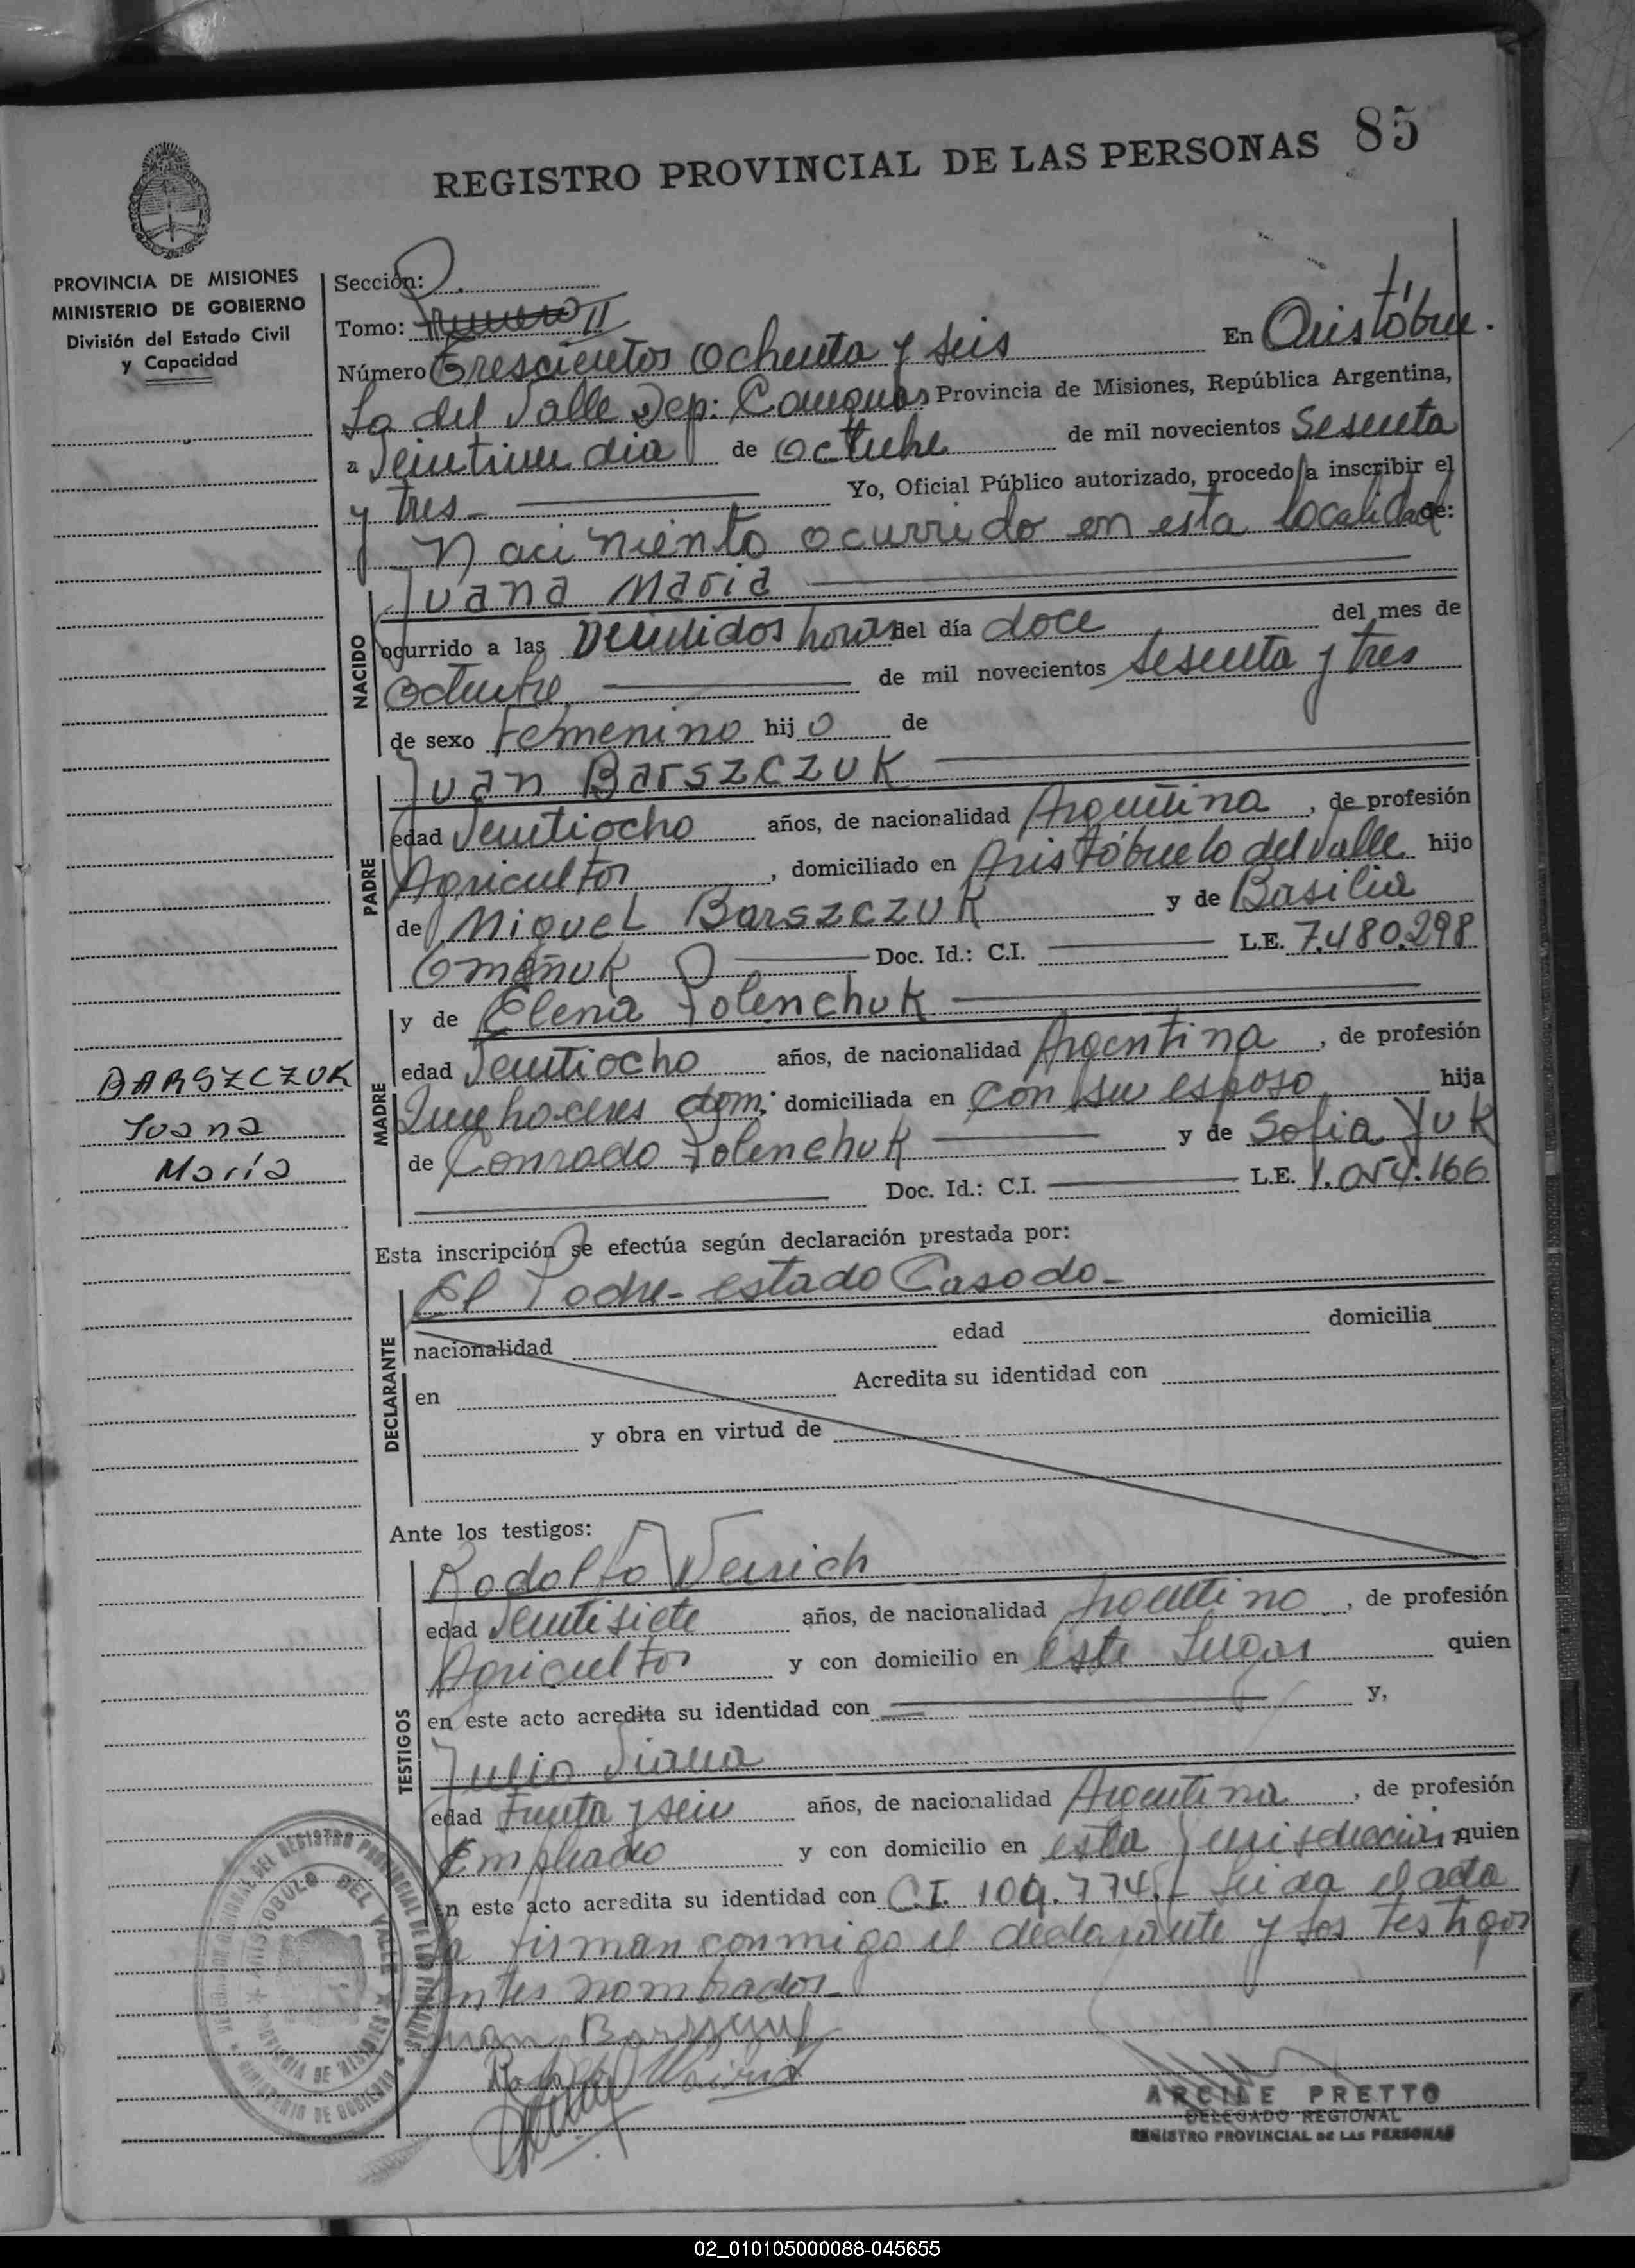 85
REGISTRO PROVINCIAL DE LAS PERSONAS
PROVINCIA DE MISIONES
MINISTERIO DE GOBIERNO
División del Estado Civil
y Capacidad
Sección:
Tomo: Primero II
Número Trescientos Ochenta y seis En Aristóbu-
lo del Valle Dep: Caingúas Provincia de Misiones, República Argentina,
a Veintiun dia de Octubre de mil novecientos Sesenta
y tres Yo, Oficial Público autorizado, procedo a inscribir el
Nacimiento ocurrido en esta localidad de:
NACIDO
Juana Maria
ocurrido a las Veintidos horas del día doce del mes de
Octubre de mil novecientos Sesenta y tres
de sexo Femenino hijo de
PADRE
Juan Barszczuk
edad Veintiocho años, de nacionalidad Argentina, de profesión
Agricultor, domiciliado en Aristóbuelo del Valle hijo
de Miguel Barszczuk y de Basilia
Omeñuk Doc. Id.: C.I. L.E. 7.480.298
MADRE
y de Elena Polenchuk
edad Veintiocho años, de nacionalidad Argentina, de profesión
Quehaceres dom. domiciliada en con su esposo hija
de Conrado Polenchuk y de Sofia Yuk
Doc. Id.: C.I. L.E. 1.054.166
BARSZCZUK
Juana
María
Esta inscripción se efectúa según declaración prestada por:
DECLARANTE
El Padre- estado Casado-
nacionalidad edad domicilia
en Acredita su identidad con
y obra en virtud de
Ante los testigos:
TESTIGOS
Rodolfo
edad Veintisiete años, de nacionalidad Argentino, de profesión
Agricultor y con domicilio en este Lugar quien
en este acto acredita su identidad con y,
Julio Viana
edad Treinta y seis años, de nacionalidad Argentina, de profesión
Empleado y con domicilio en esta Jurisdicción quien
en este acto acredita su identidad con C.I. 109.774. Leida el acta
la firman conmigo el declarante y los testigos
antes nombrados
Juan Barszczuk
ARCILE PRETTO
DELEGADO REGIONAL
REGISTRO PROVINCIAL DE LAS PERSONAS
ARISTOBULO DEL VALLE
PROVINCIA DE MISIONES
MINISTERIO DE GOBIERNO
02_010105000088-045655